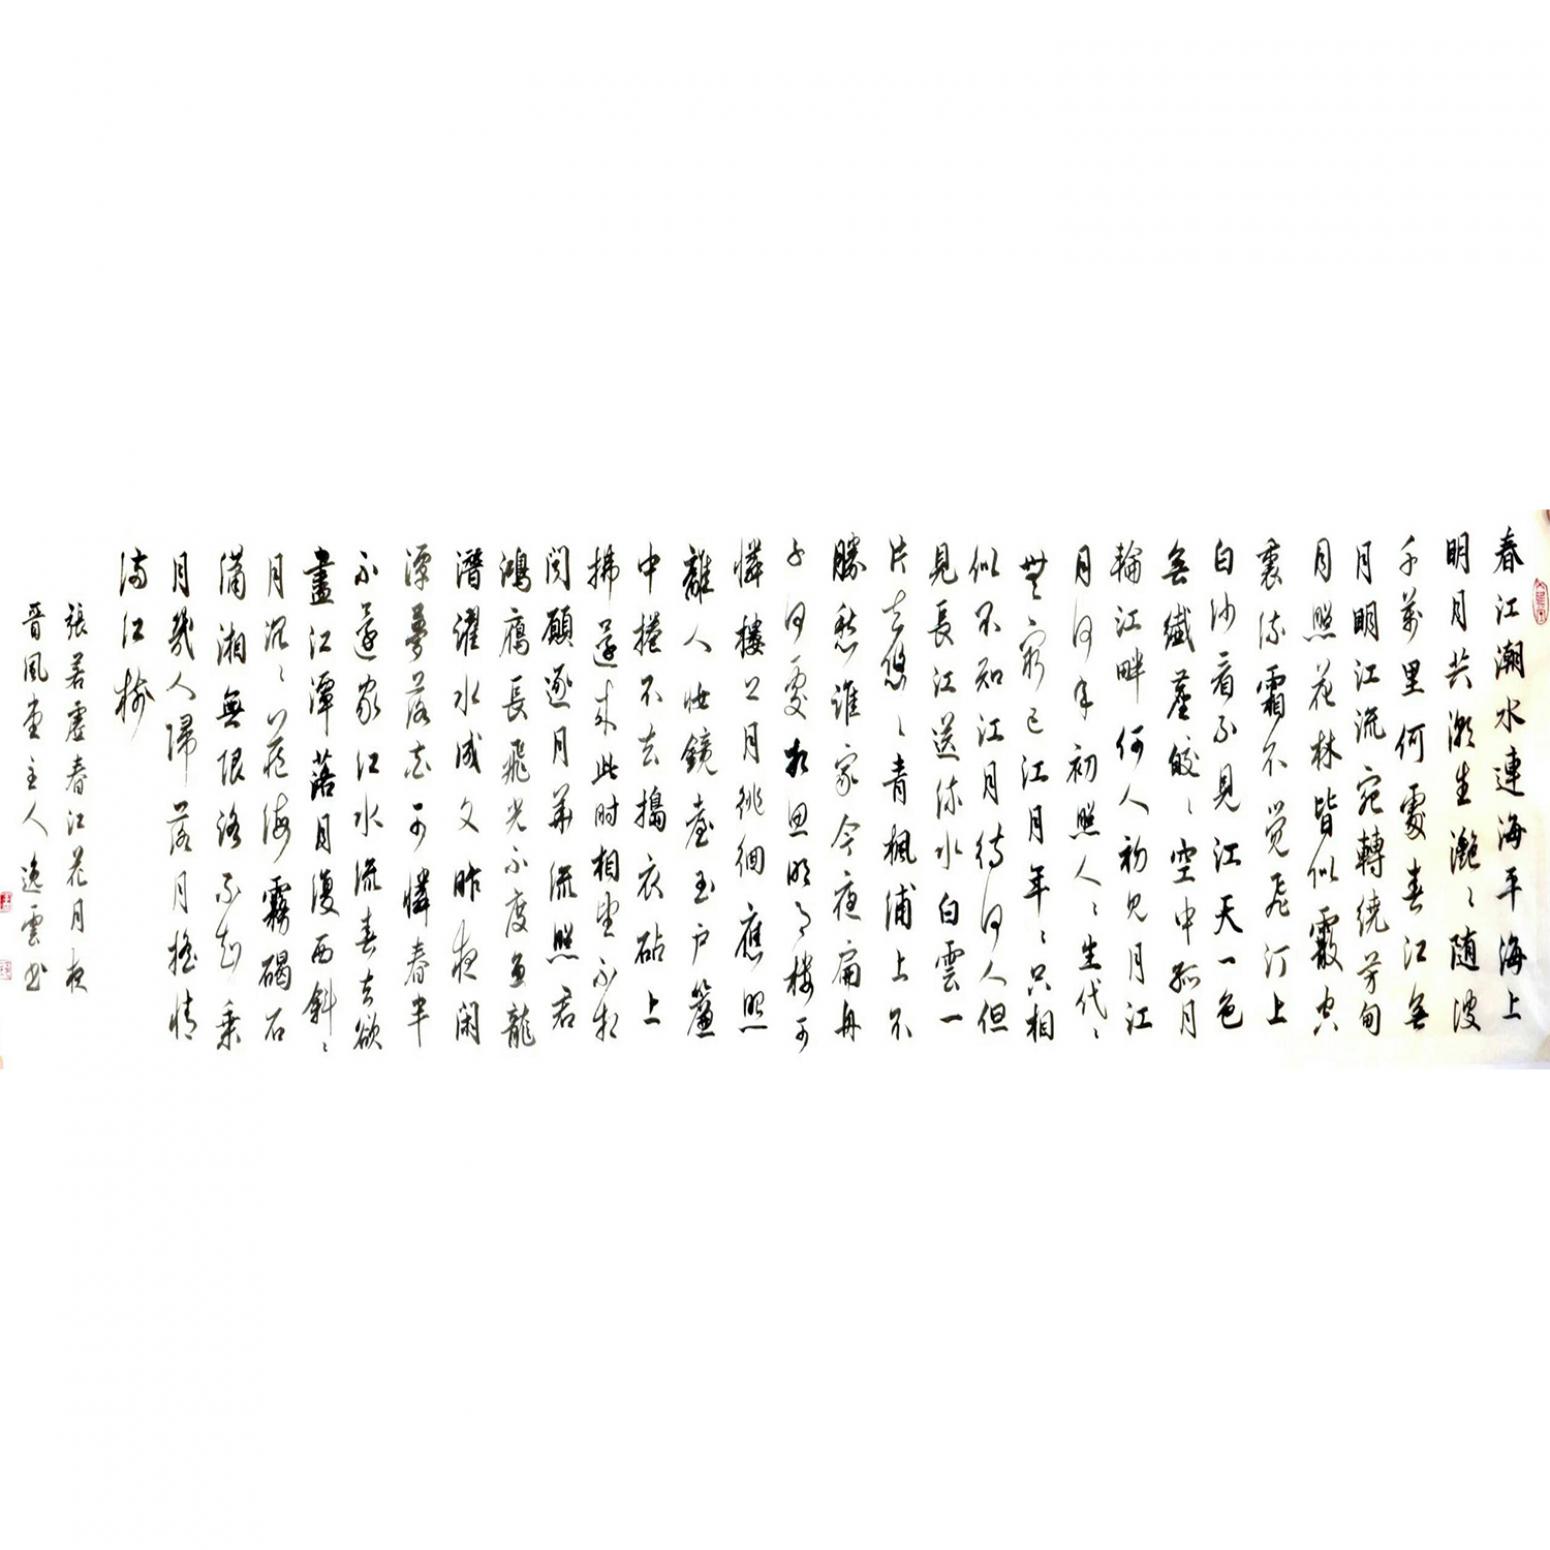 春江潮水連海平海上
明月共潮生灧〻随波
千萬里何處春江無
月明江流宛轉繞芳甸
月照花林皆似霰空
裏流霜不覺飛汀上
白沙看不見江天一色
無纖塵皎〻空中孤月
輪江畔何人初見月江
月何年初照人〻生代〻
無窮已江月年〻只相
似不知江月待何人但
見長江送流水白雲一
片去悠〻青楓浦上不
勝愁誰家今夜扁舟
子何處相思明月樓可
憐樓上月徘徊應照
離人妝鏡臺玉户簾
中捲不去搗衣砧上
拂還來此时相望不相
聞願逐月華流照君
鴻雁長飛光不度魚龍
潛濯水成文昨夜閑
潭夢落花可憐春半
不還家江水流春去欲
盡江潭落月復西斜〻
月沉〻藏海霧碣石
瀟湘無限路不知乘
月幾人歸落月摇情
滿江樹
張若虛春江花月夜
晉風堂主人逸雲书